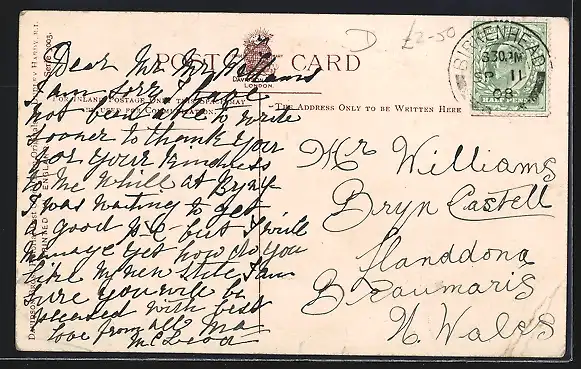 POST CARD
D £2-50
BIRKENHEAD
5 30 PM
SP 11
08
HALFPENNY
DAVIDSON BROS
LONDON.
FOR INLAND POSTAGE ONLY THIS SPACE MAY
BE USED FOR COMMUNICATION.
THE ADDRESS ONLY TO BE WRITTEN HERE
Dear Mr Williams
I am sorry I have
not been able to write
sooner to thank you
for your kindness
to me while at Bryn
I was waiting to get
a good p.c but I will
manage yet how do you
like my new I am
sure you will be
pleased with best
love from all Ma
McLeod
Mr Williams
Bryn Castell
Llanddona
Beaumaris
N Wales